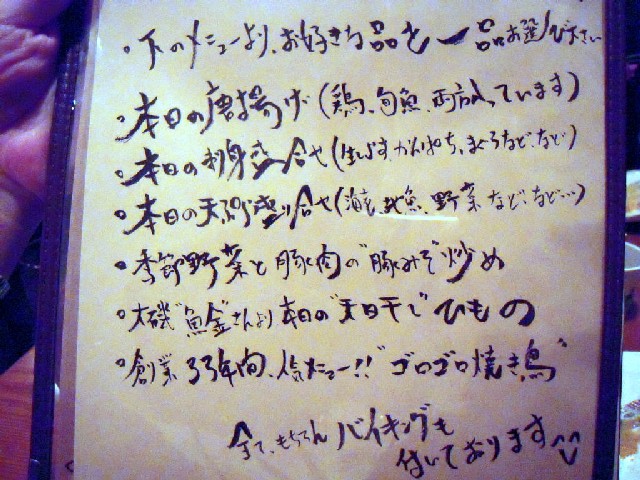 ・下のメニューより、お好きな品を一品お選び下さい
・本日の唐揚げ(鶏、旬魚、両方入っています)
・本日の刺身盛り合せ(生しらす、かんぱち、まぐろなど、など)
・本日の天ぷら盛り合せ(海老、地魚、野菜など、など…)
・季節野菜と豚肉の"豚みそ"炒め
・大磯"魚金"さんより本日の"天日干し"ひもの
・創業33年間、人気メニュー!!"ゴロゴロ焼き鳥"
全て、もちろんバイキングも
付いております^^